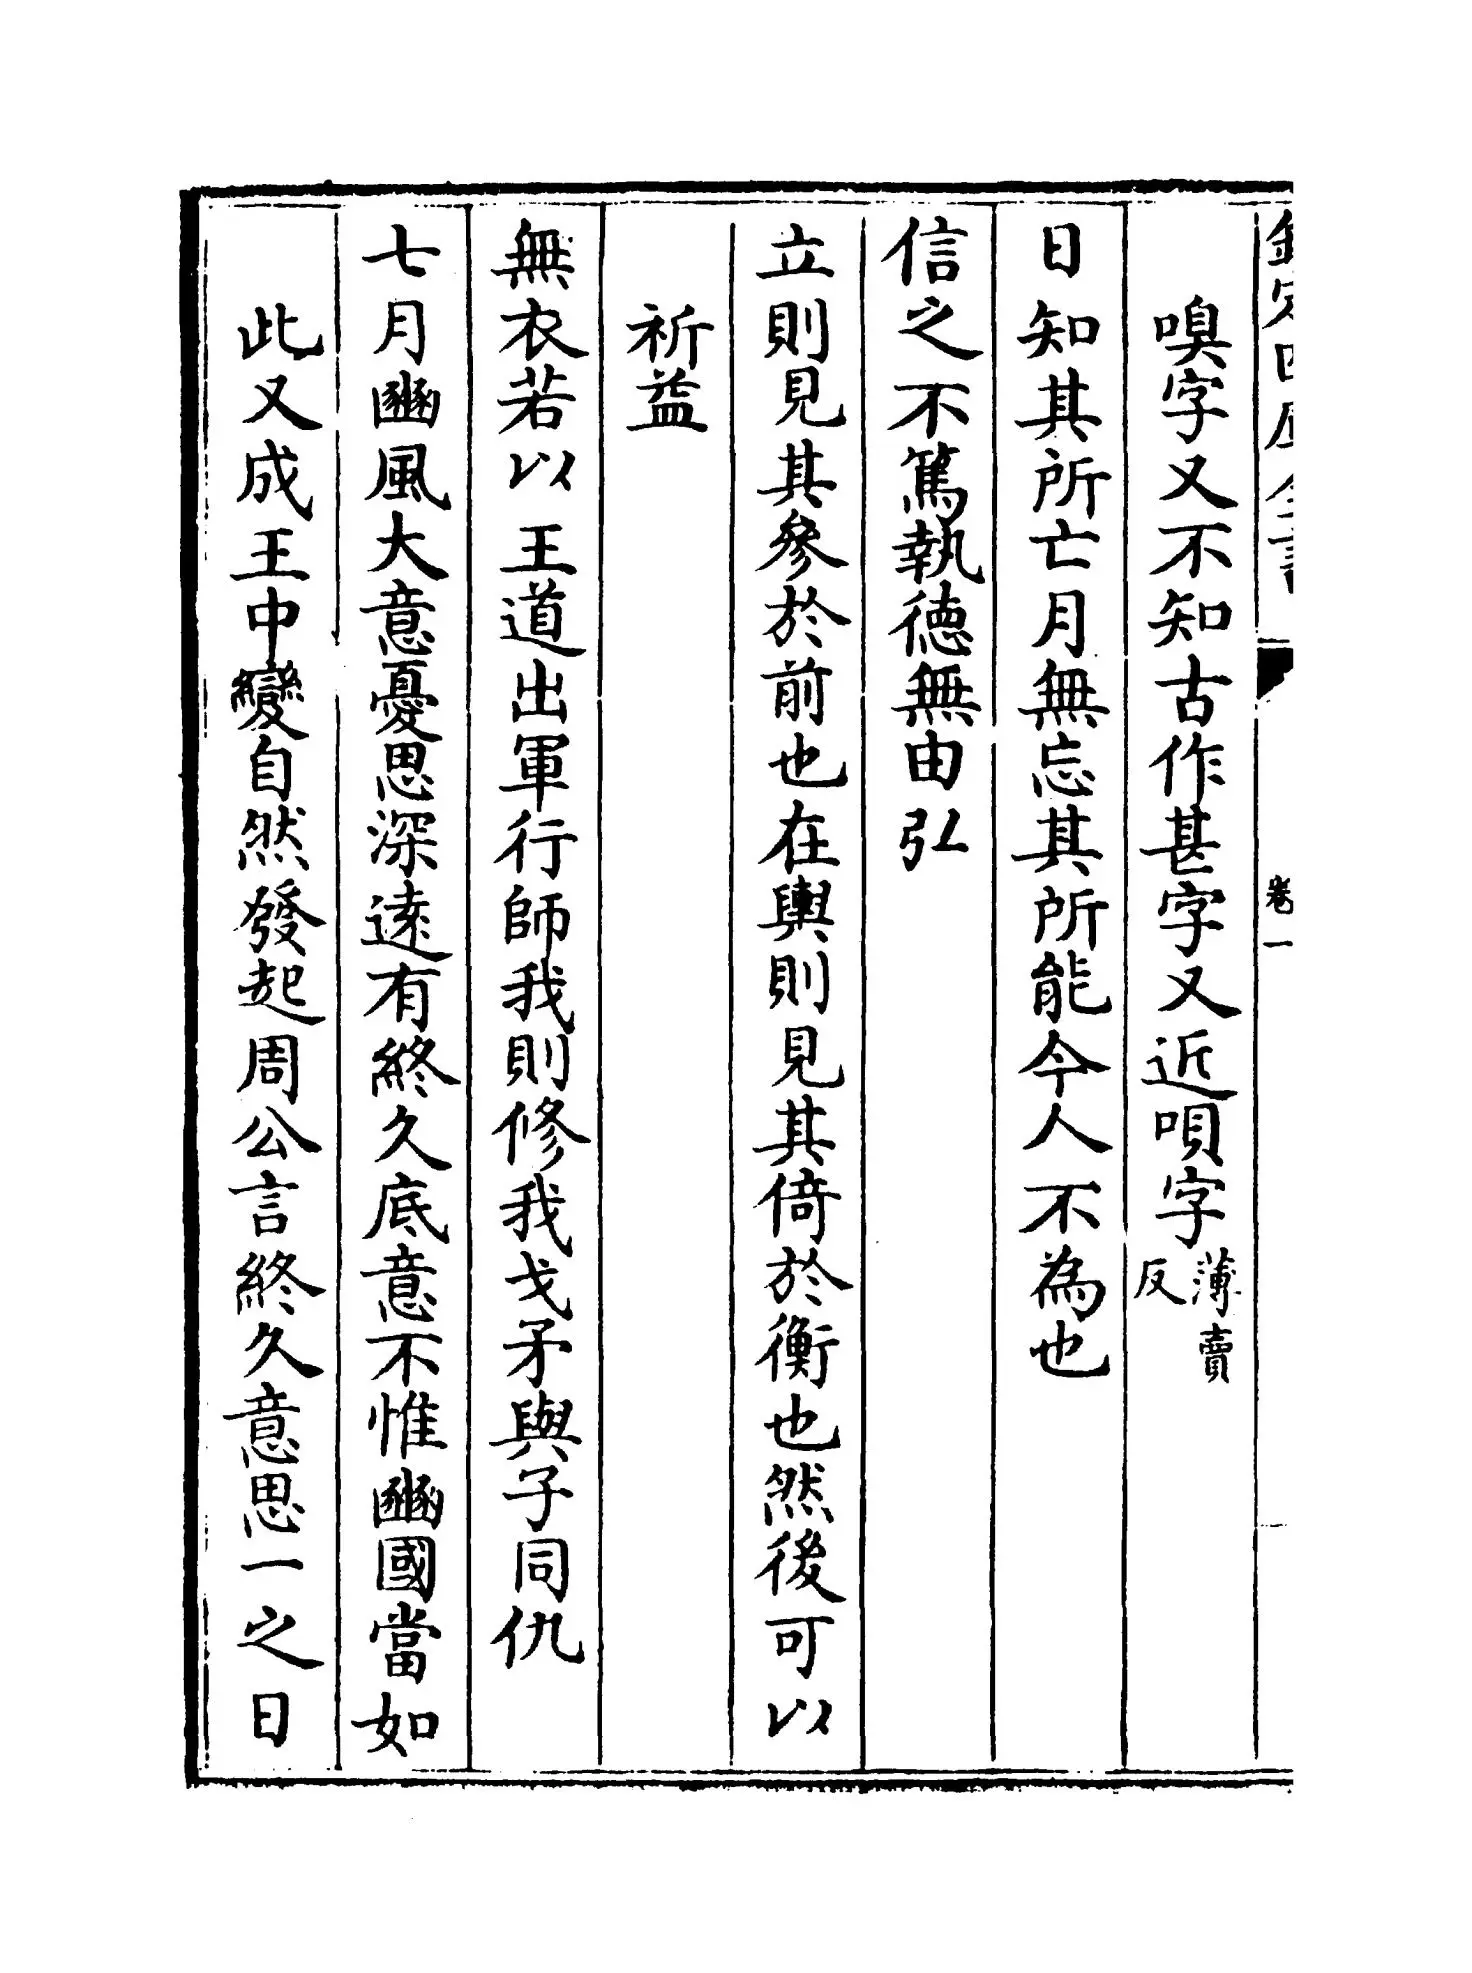 欽定四庫全書 卷一
嗅字又不知古作甚字又近唄字薄賣反
日知其所亡月無忘其所能今人不為也
信之不篤執德無由弘
立則見其參於前也在輿則見其倚於衡也然後可以
祈益
無衣若以王道出軍行師我則修我戈矛與子同仇
七月豳風大意憂思深逺有終久底意不惟豳國當如
此又成王中變自然發起周公言終久意思一之日